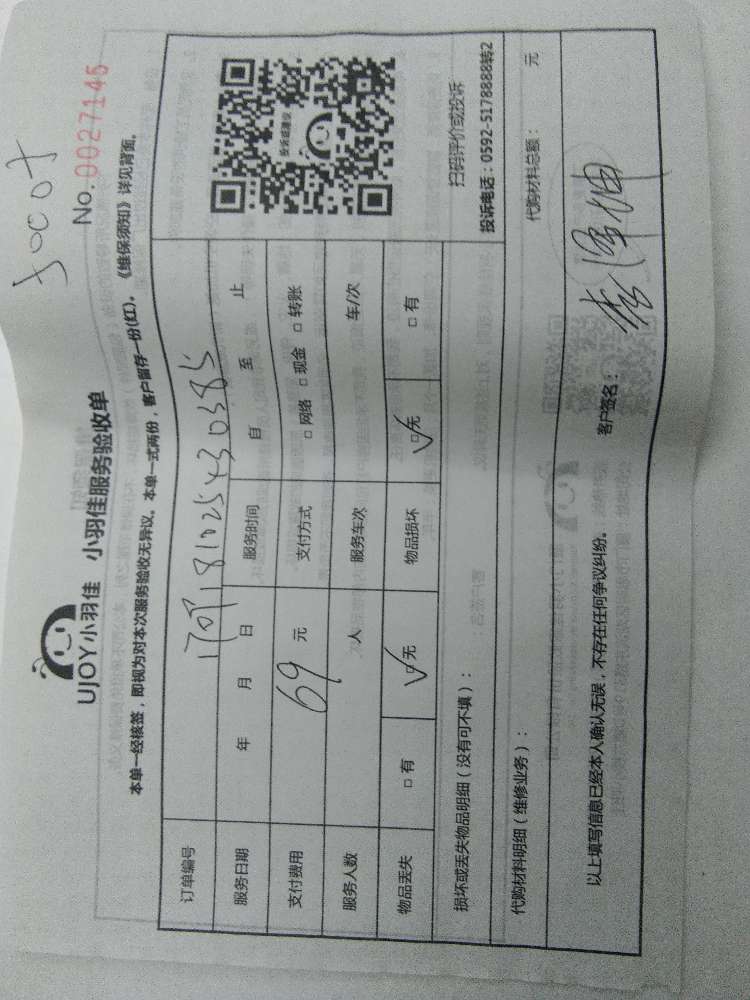 UJOY小羽佳 小羽佳服务验收单
No.0027145
本单一经核签，即视为对本次服务验收无异议。本单一式两份，客户留存一份(红)。《维保须知》详见背面。
订单编号 181025430385
服务日期 年 月 日 服务时间 自 至 止
支付费用 69 元 支付方式 □网络 □现金 □转账
服务人数 人 服务车次 车/次
物品丢失 □有 □无 物品损坏 □无 □有
投诉或建议
扫码评价或投诉
投诉电话：0592-5178888转2
损坏或丢失物品明细（没有可不填）：
代购材料明细（维修业务）： 代购材料总额： 元
以上填写信息已经本人确认无误，不存在任何争议纠纷。 客户签名：